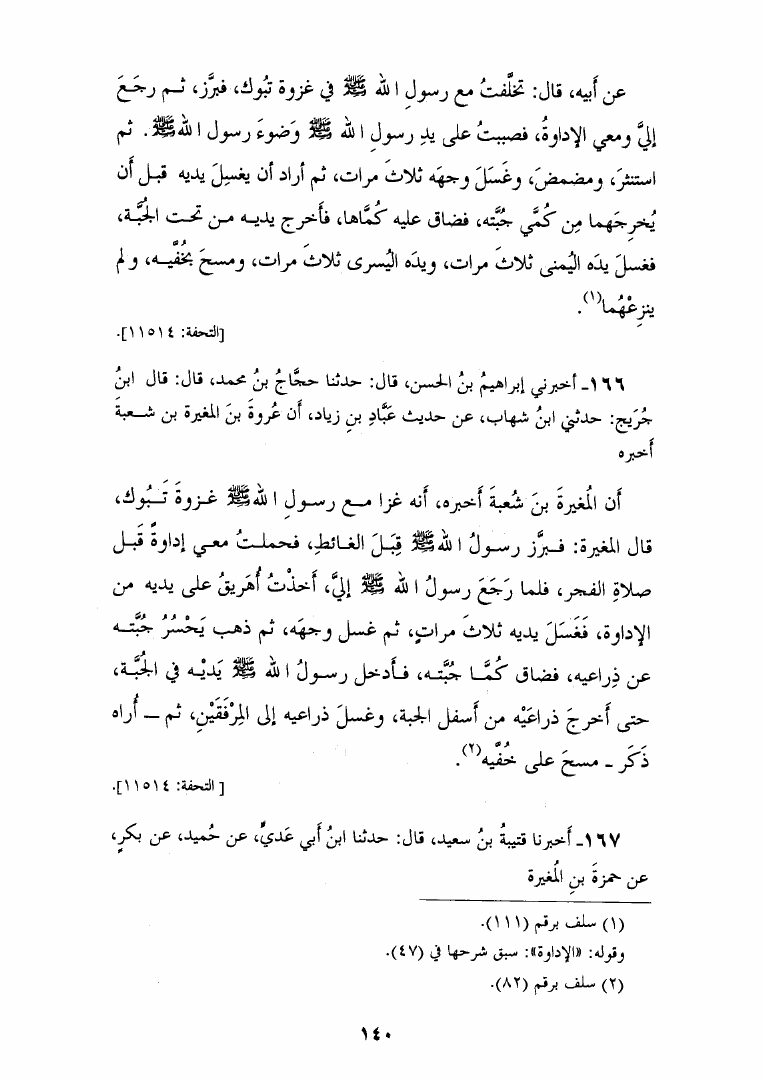 عن أبيه، قال: تخلَّفتُ مع رسولِ الله ﷺ في غزوة تبُوك، فبرَّز، ثـم رجَـعَ
إليَّ ومعي الإداوةُ، فصببتُ على يدِ رسولِ الله ﷺ وَضوءَ رسول الله ﷺ. ثم
استنثرَ، ومضمضَ، وغَسَلَ وجهَه ثلاثَ مرات، ثم أراد أن يغسِلَ يديه قبـل أن
يُخرجَهما مِن كُمَّي جُبَّته، فضاق عليه كُمَّاها، فأخرج يديـه مـن تحـت الجُبَّة،
فغسلَ يدَه اليُمنى ثلاثَ مرات، ويدَه اليُسرى ثلاثَ مرات، ومسحَ بخُفَّيـه، و لم
ينزِعْهُما(١).
[التحفة: ١١٥١٤].
١٦٦ـ أخبرني إبراهيمُ بنُ الحسن، قال: حدثنا حجَّاجُ بنُ محمد، قال: قال ابنُ
جُرَيج: حدثني ابنُ شهاب، عن حديث عبَّادِ بنِ زياد، أن عُروةَ بنَ المغيرة بن شـعبةَ
أخبره
أن المُغيرةَ بنَ شُعبةَ أخبره، أنه غزا مـع رسـولِ الله ﷺ غـزوةَ تَـبُوك،
قال المغيرة: فـبرَّز رسـولُ الله ﷺ قِبَـلَ الغـائطِ، فحملـتُ معـي إداوةً قَبـل
صلاةِ الفجر، فلما رَجَعَ رسولُ الله ﷺ إليَّ، أخذْتُ أُهَريقُ على يديه من
الإداوة، فَغَسَلَ يديه ثلاثَ مراتٍ، ثم غسل وجهَه، ثم ذهب يَحْسُرُ جُبَّتـه
عن ذِراعيه، فضاق كُمَّـا جُبَّتـه، فـأدخل رسـولُ الله ﷺ يَديْـه في الجُبَّـة،
حتى أخرجَ ذراعَيْه من أسفل الجبة، وغسلَ ذراعيه إلى المِرْفَقَيْنِ، ثم ـ أُراه
ذَكَر ـ مسحَ على خُفَّيه(٢).
[التحفة: ١١٥١٤].
١٦٧ـ أخبرنا قتيبةُ بنُ سعيد، قال: حدثنا ابنُ أبي عَديٍّ، عن حُميد، عن بكرٍ،
عن حمزةَ بنِ المُغيرة
(١) سلف برقم (١١١).
وقوله: «الإداوة»: سبق شرحها في (٤٧).
(٢) سلف برقم (٨٢).
١٤٠